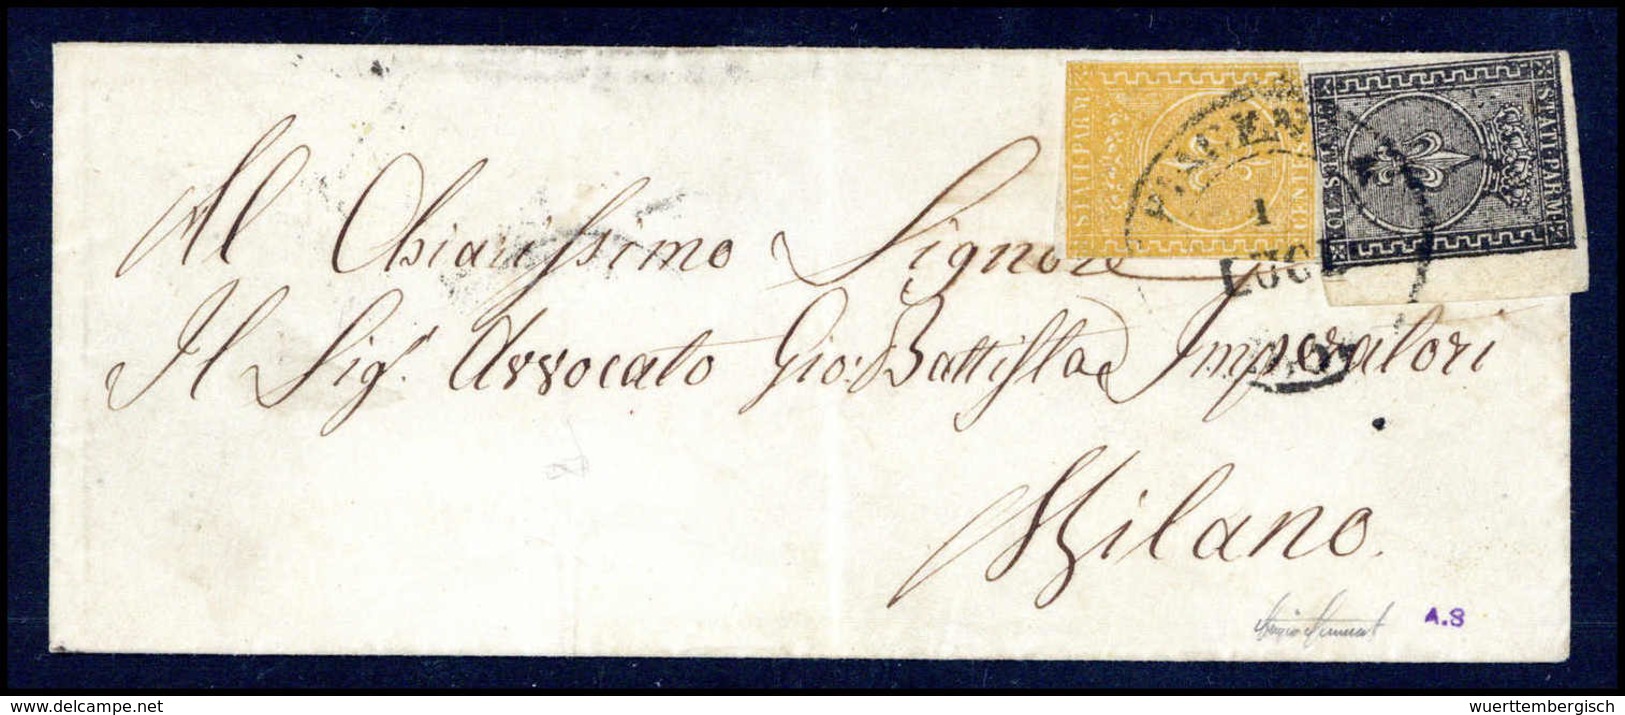 STATI PARM.
CENTES.
STATI PARM.
CENTES. 10
PIACENZA
1
LUGL
Al Chiarissimo Signore
Il Sigr. Avvocato Gio: Battista Imperatori
Milano.
A.S
delcampe.net
wuerttembergisch